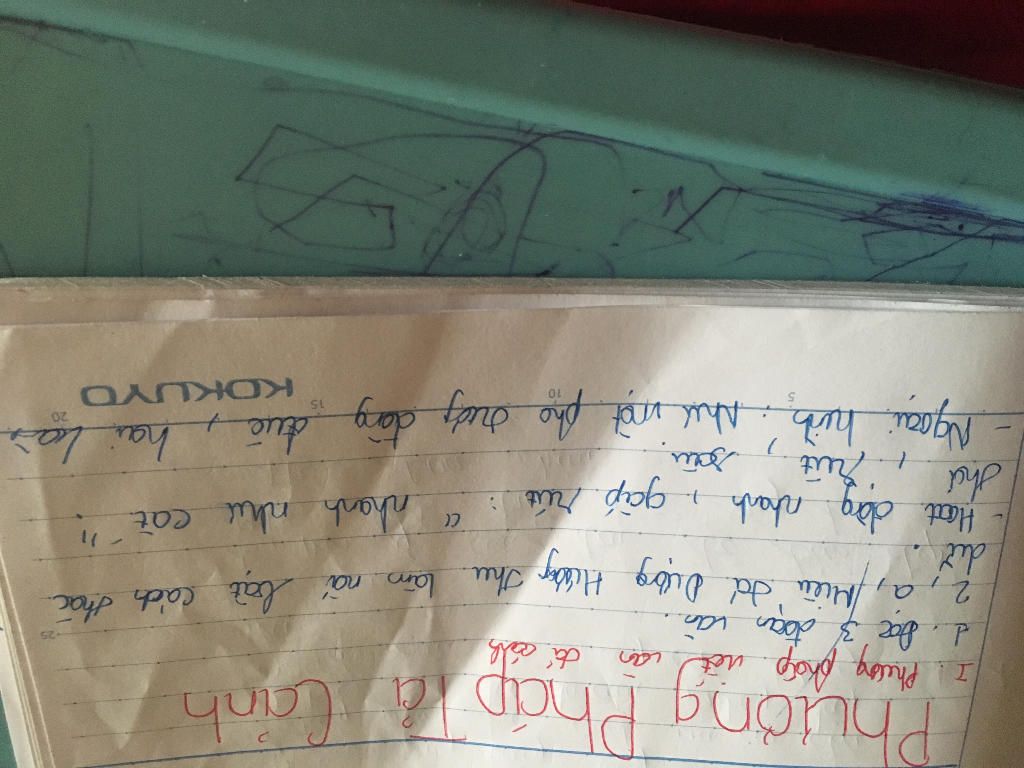 Phương Pháp Tả Cảnh
I. Phương pháp viết văn tả cảnh
1. Đọc 3 đoạn văn.
2, a, Miêu tả Dượng Hương Thư làm nổi bật cảnh thác
dữ.
- Hoạt động nhanh, gấp rút : " nhanh như cắt ".
thả , rút
- Ngoại hình : Như một pho tượng đồng đúc , hai
5 10 15 20 25
KOKUYO